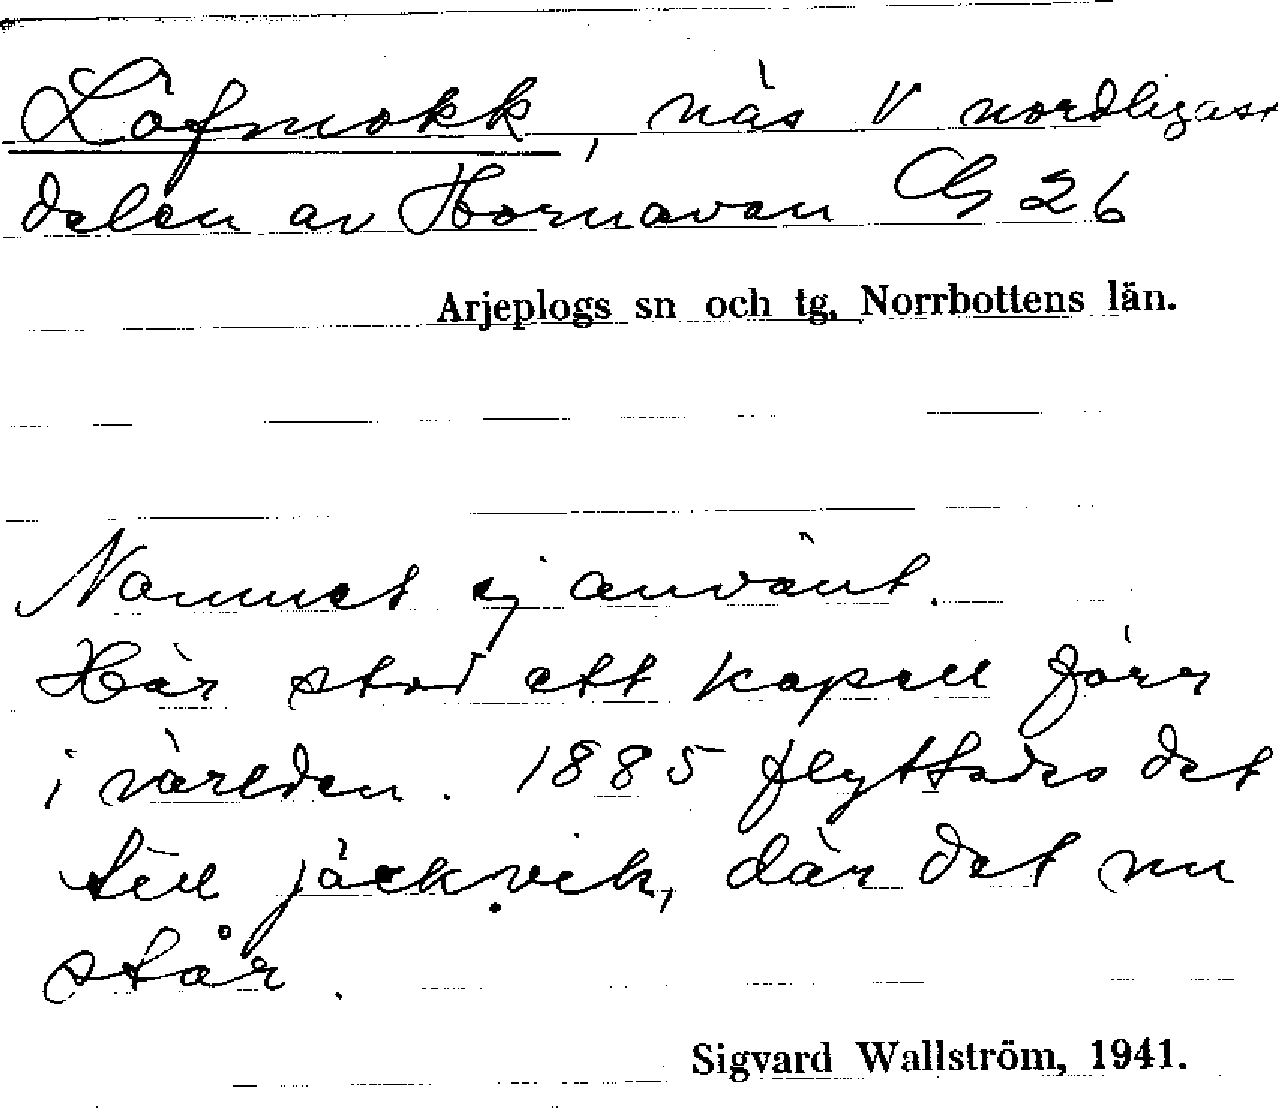 Löfmokk, näs V nordligast
delen av Hornavan Ch 26
Arjeplogs sn och tg. Norrbottens län.
Namnet ej använt.
Här stod ett kapell förr
i världen. 1885 flyttades det
till jäckvik, där det nu
står.
Sigvard Wallström, 1941.